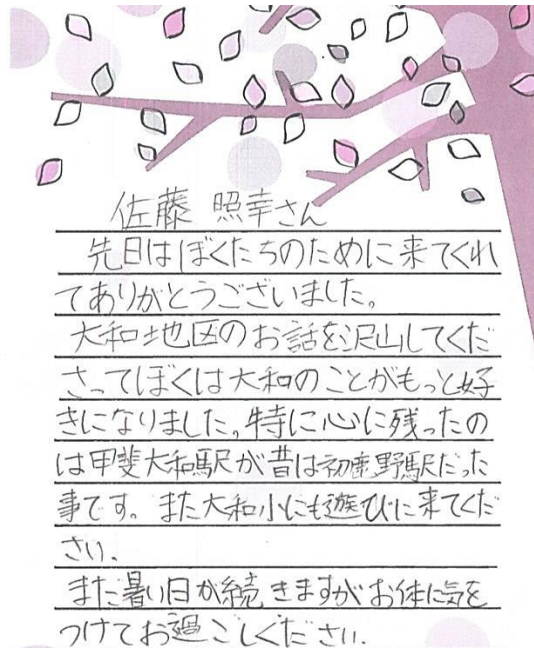 佐藤 照幸さん
先日はぼくたちのために来てくれ
てありがとうございました。
大和地区のお話を沢山してくだ
さってぼくは大和のことがもっと好
きになりました。特に心に残ったの
は甲斐大和駅が昔は初鹿野駅だった
事です。また大和小にも遊びに来てくだ
さい。
また暑い日が続きますがお体に気を
つけてお過ごしください。